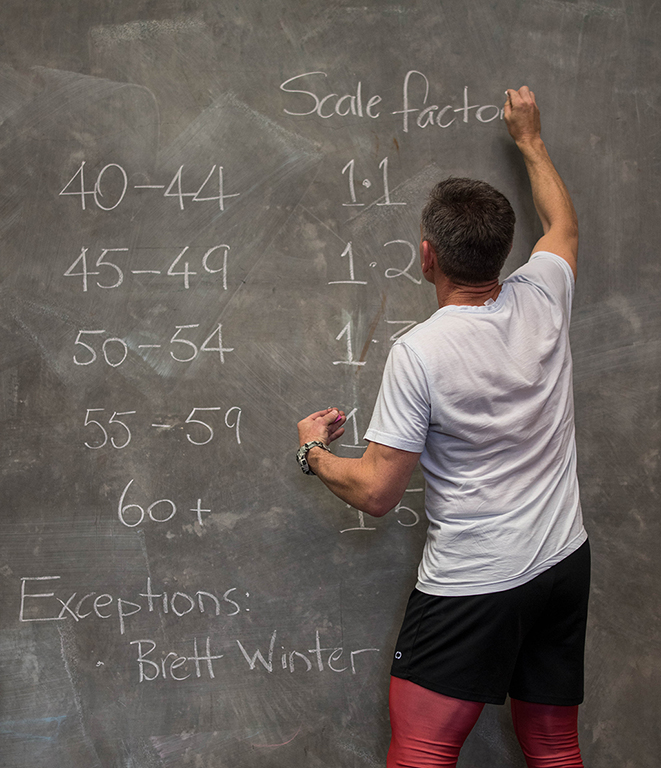 Scale factor
40-44 1.1
45-49 1.2
50-54 1.3
55-59 1
60+ 1.5
Exceptions:
Brett Winter